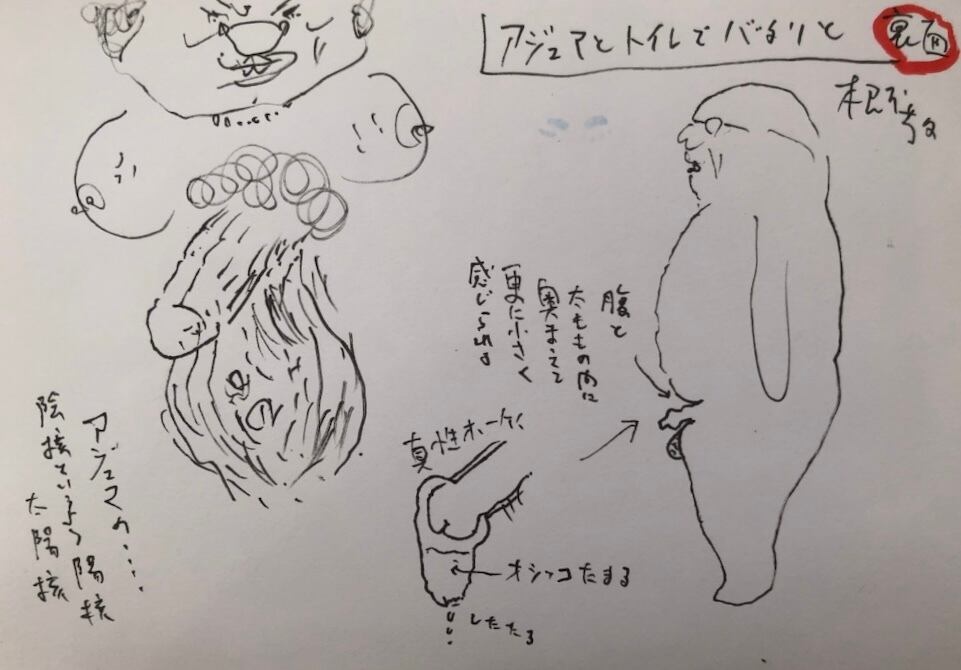 アジュマとトイレでバッタリと
裏面
根本敬
腹と
太ももの肉に
奥まって
更に小さく
感じられる
真性ホーケイ
オシッコたまる
したたる
アジュマの……
陰核ていうより陽核
太陽核